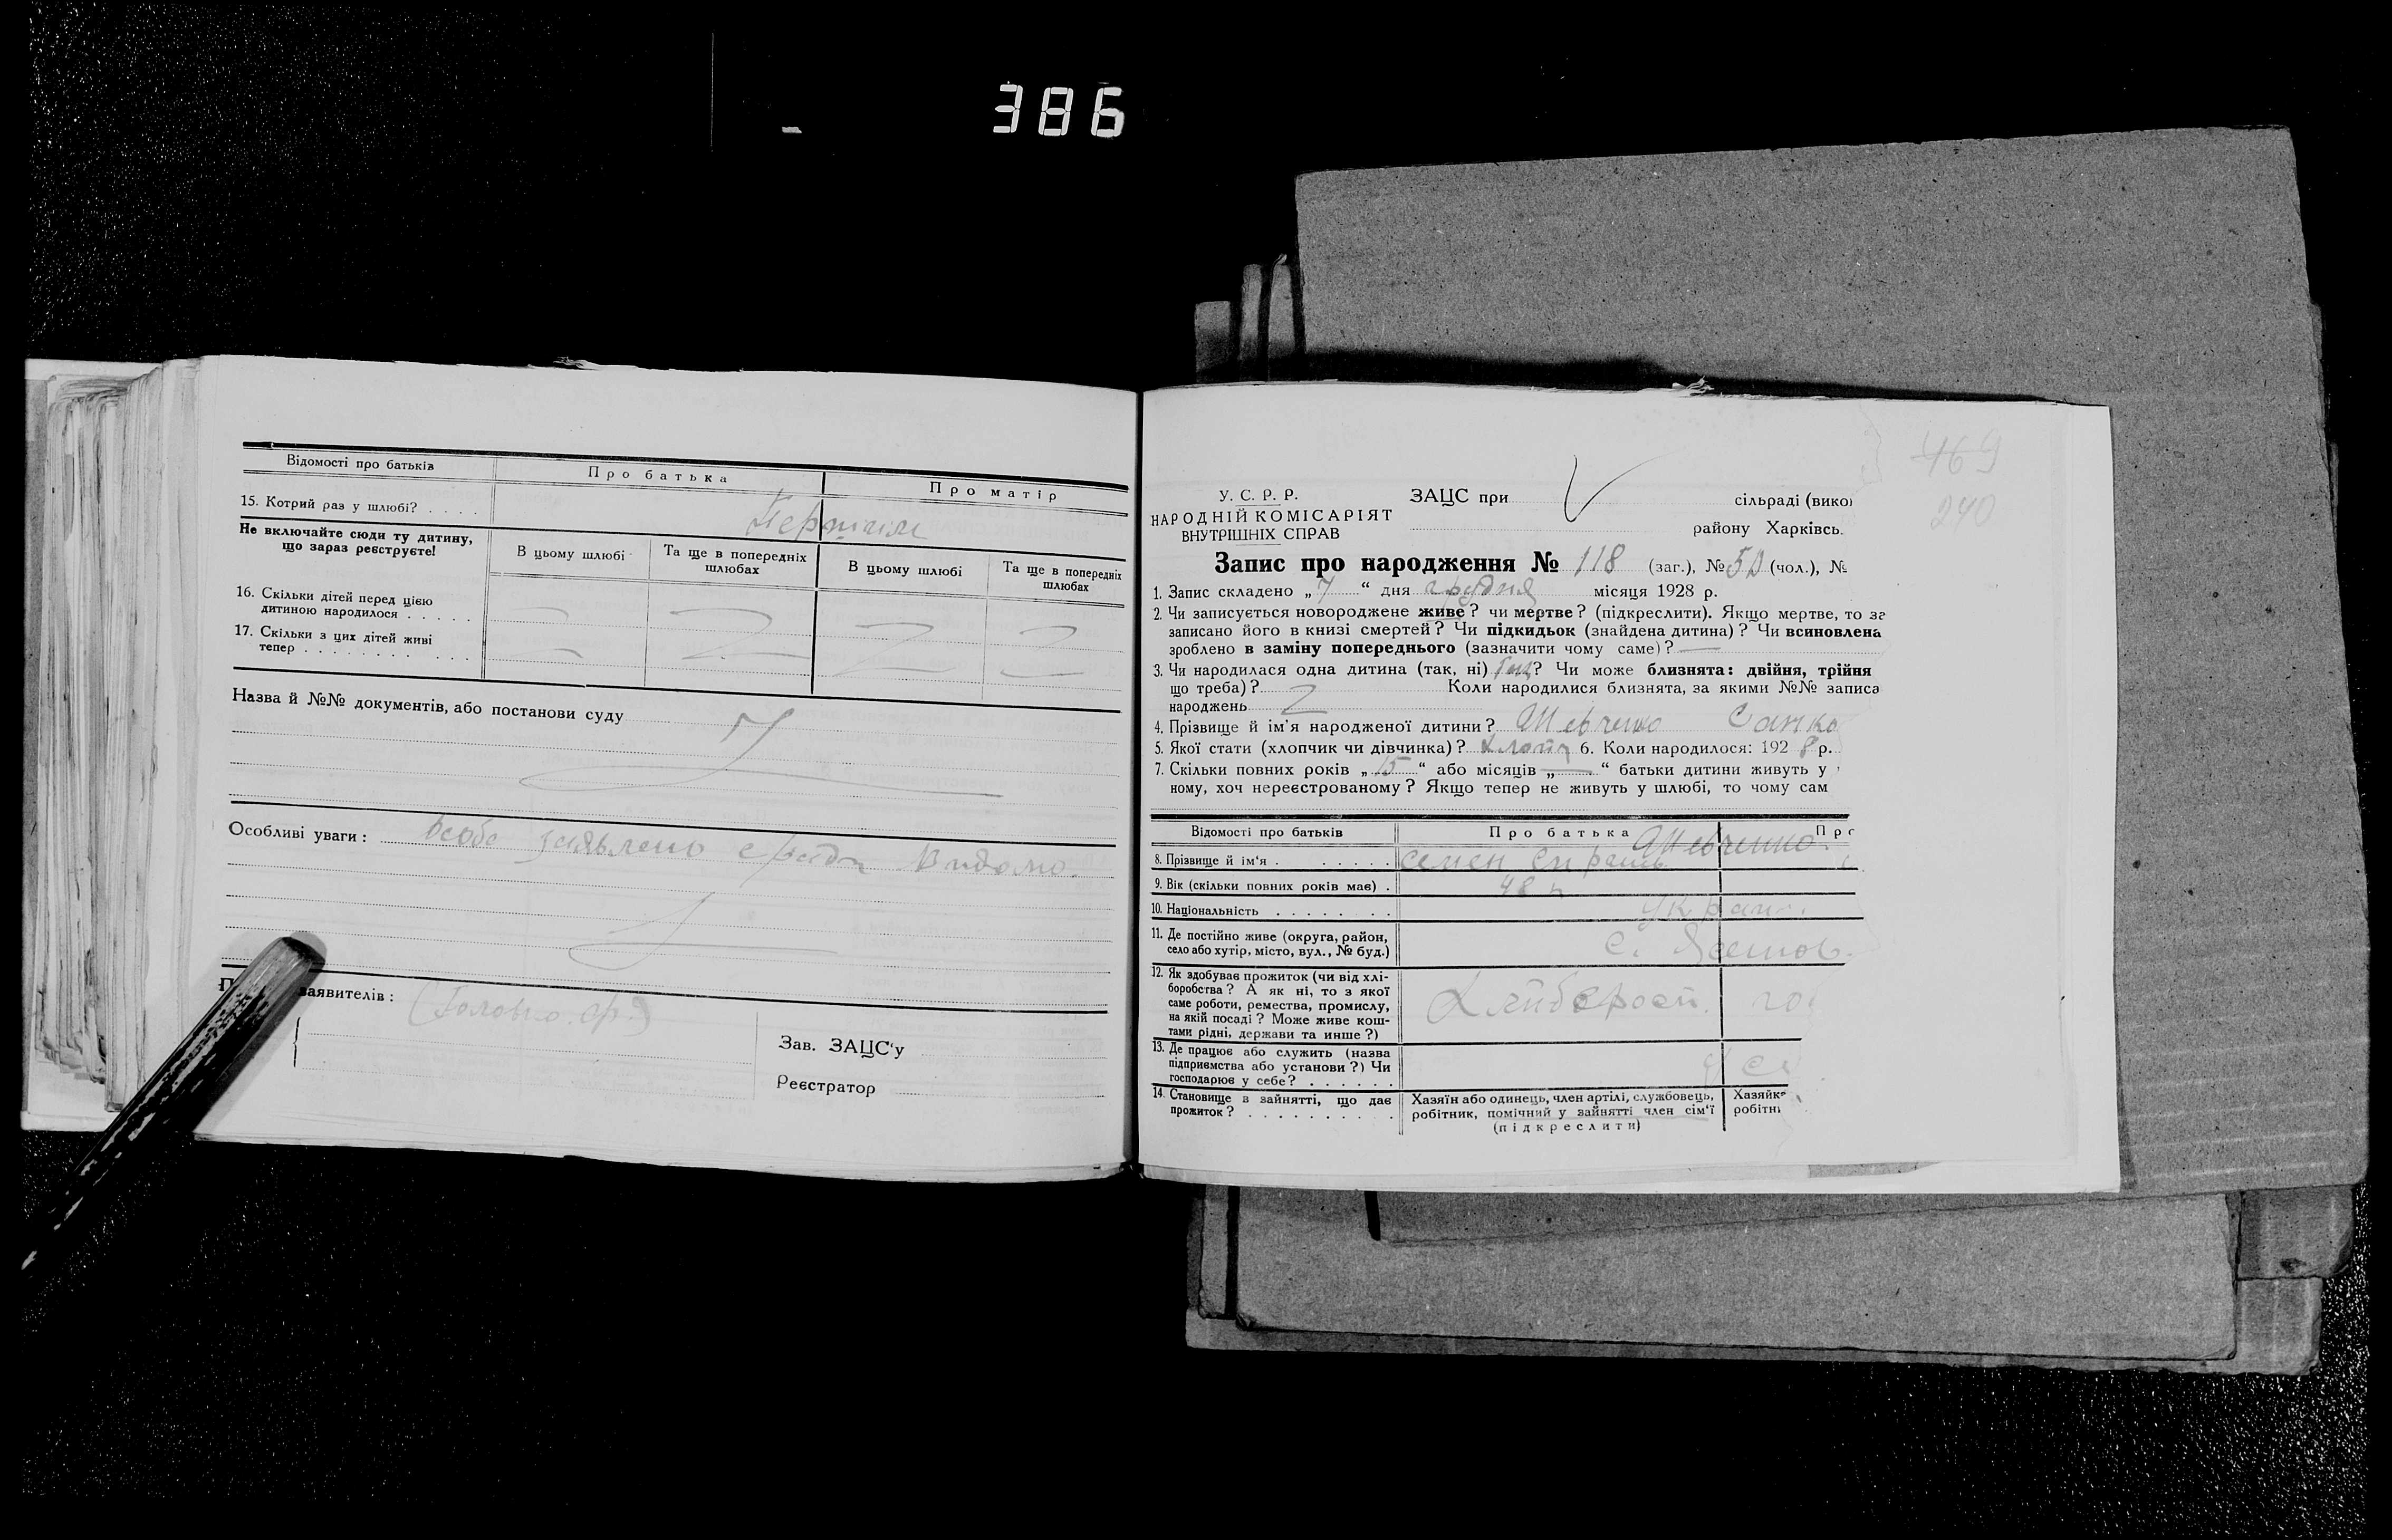 386
Відомості про батьків
Про батька
Про матір
15. Котрий раз у шлюбі? . . . .
Не включайте сюди ту дитину,
що зараз реєструєте!
В цьому шлюбі
Та ще в попередніх
шлюбах
В цьому шлюбі
Та ще в попередніх
шлюбах
16. Скільки дітей перед цією
дитиною народилося . . . . .
17. Скільки з цих дітей живі
тепер . . . . . . . . . . .
Назва й №№ документів, або постанови суду
Особливі уваги:
заявителів:
Зав. ЗАЦС'у
Реєстратор
469
240
У. С. Р. Р.
НАРОДНІЙ КОМІСАРІЯТ
ВНУТРІШНІХ СПРАВ
ЗАЦС при
сільраді (вико
району Харківсь.
Запис про народження № 118 (заг.), № (чол.), №
1. Запис складено „7“ дня грудня місяця 1928 р.
2. Чи записується новороджене живе? чи мертве? (підкреслити). Якщо мертве, то за
записано його в книзі смертей? Чи підкидьок (знайдена дитина)? Чи всиновлена
зроблено в заміну попереднього (зазначити чому саме)? —
3. Чи народилася одна дитина (так, ні) так? Чи може близнята: двійня, трійня
що треба)? Коли народилися близнята, за якими №№ записа
народжень
4. Прізвище й ім'я народженої дитини? Шевченко
5. Якої стати (хлопчик чи дівчинка)? хлопч 6. Коли народилося: 1928 р.
7. Скільки повних років „15“ або місяців „—“ батьки дитини живуть у
ному, хоч нереєстрованому? Якщо тепер не живуть у шлюбі, то чому сам
Відомості про батьків
Про батька
Прo
Шевченко
8. Прізвище й ім'я . . . . . .
Семен
9. Вік (скільки повних років має) .
48
10. Національність . . . . . . . .
Україн.
11. Де постійно живе (округа, район,
село або хутір, місто, вул., № буд.)
с.
12. Як здобуває прожиток (чи від хлі-
боробства? А як ні, то з якої
саме роботи, ремества, промислу,
на якій посаді? Може живе кош-
тами рідні, держави та инше?)
13. Де працює або служить (назва
підприємства або установи?) Чи
господарює у себе? . . . . . .
14. Становище в зайнятті, що дає
прожиток? . . . . . . . . . .
Хазяїн або одинець, член артілі, службовець,
робітник, помічний у зайнятті член сім'ї
(підкреслити)
Хазяйка
робітн